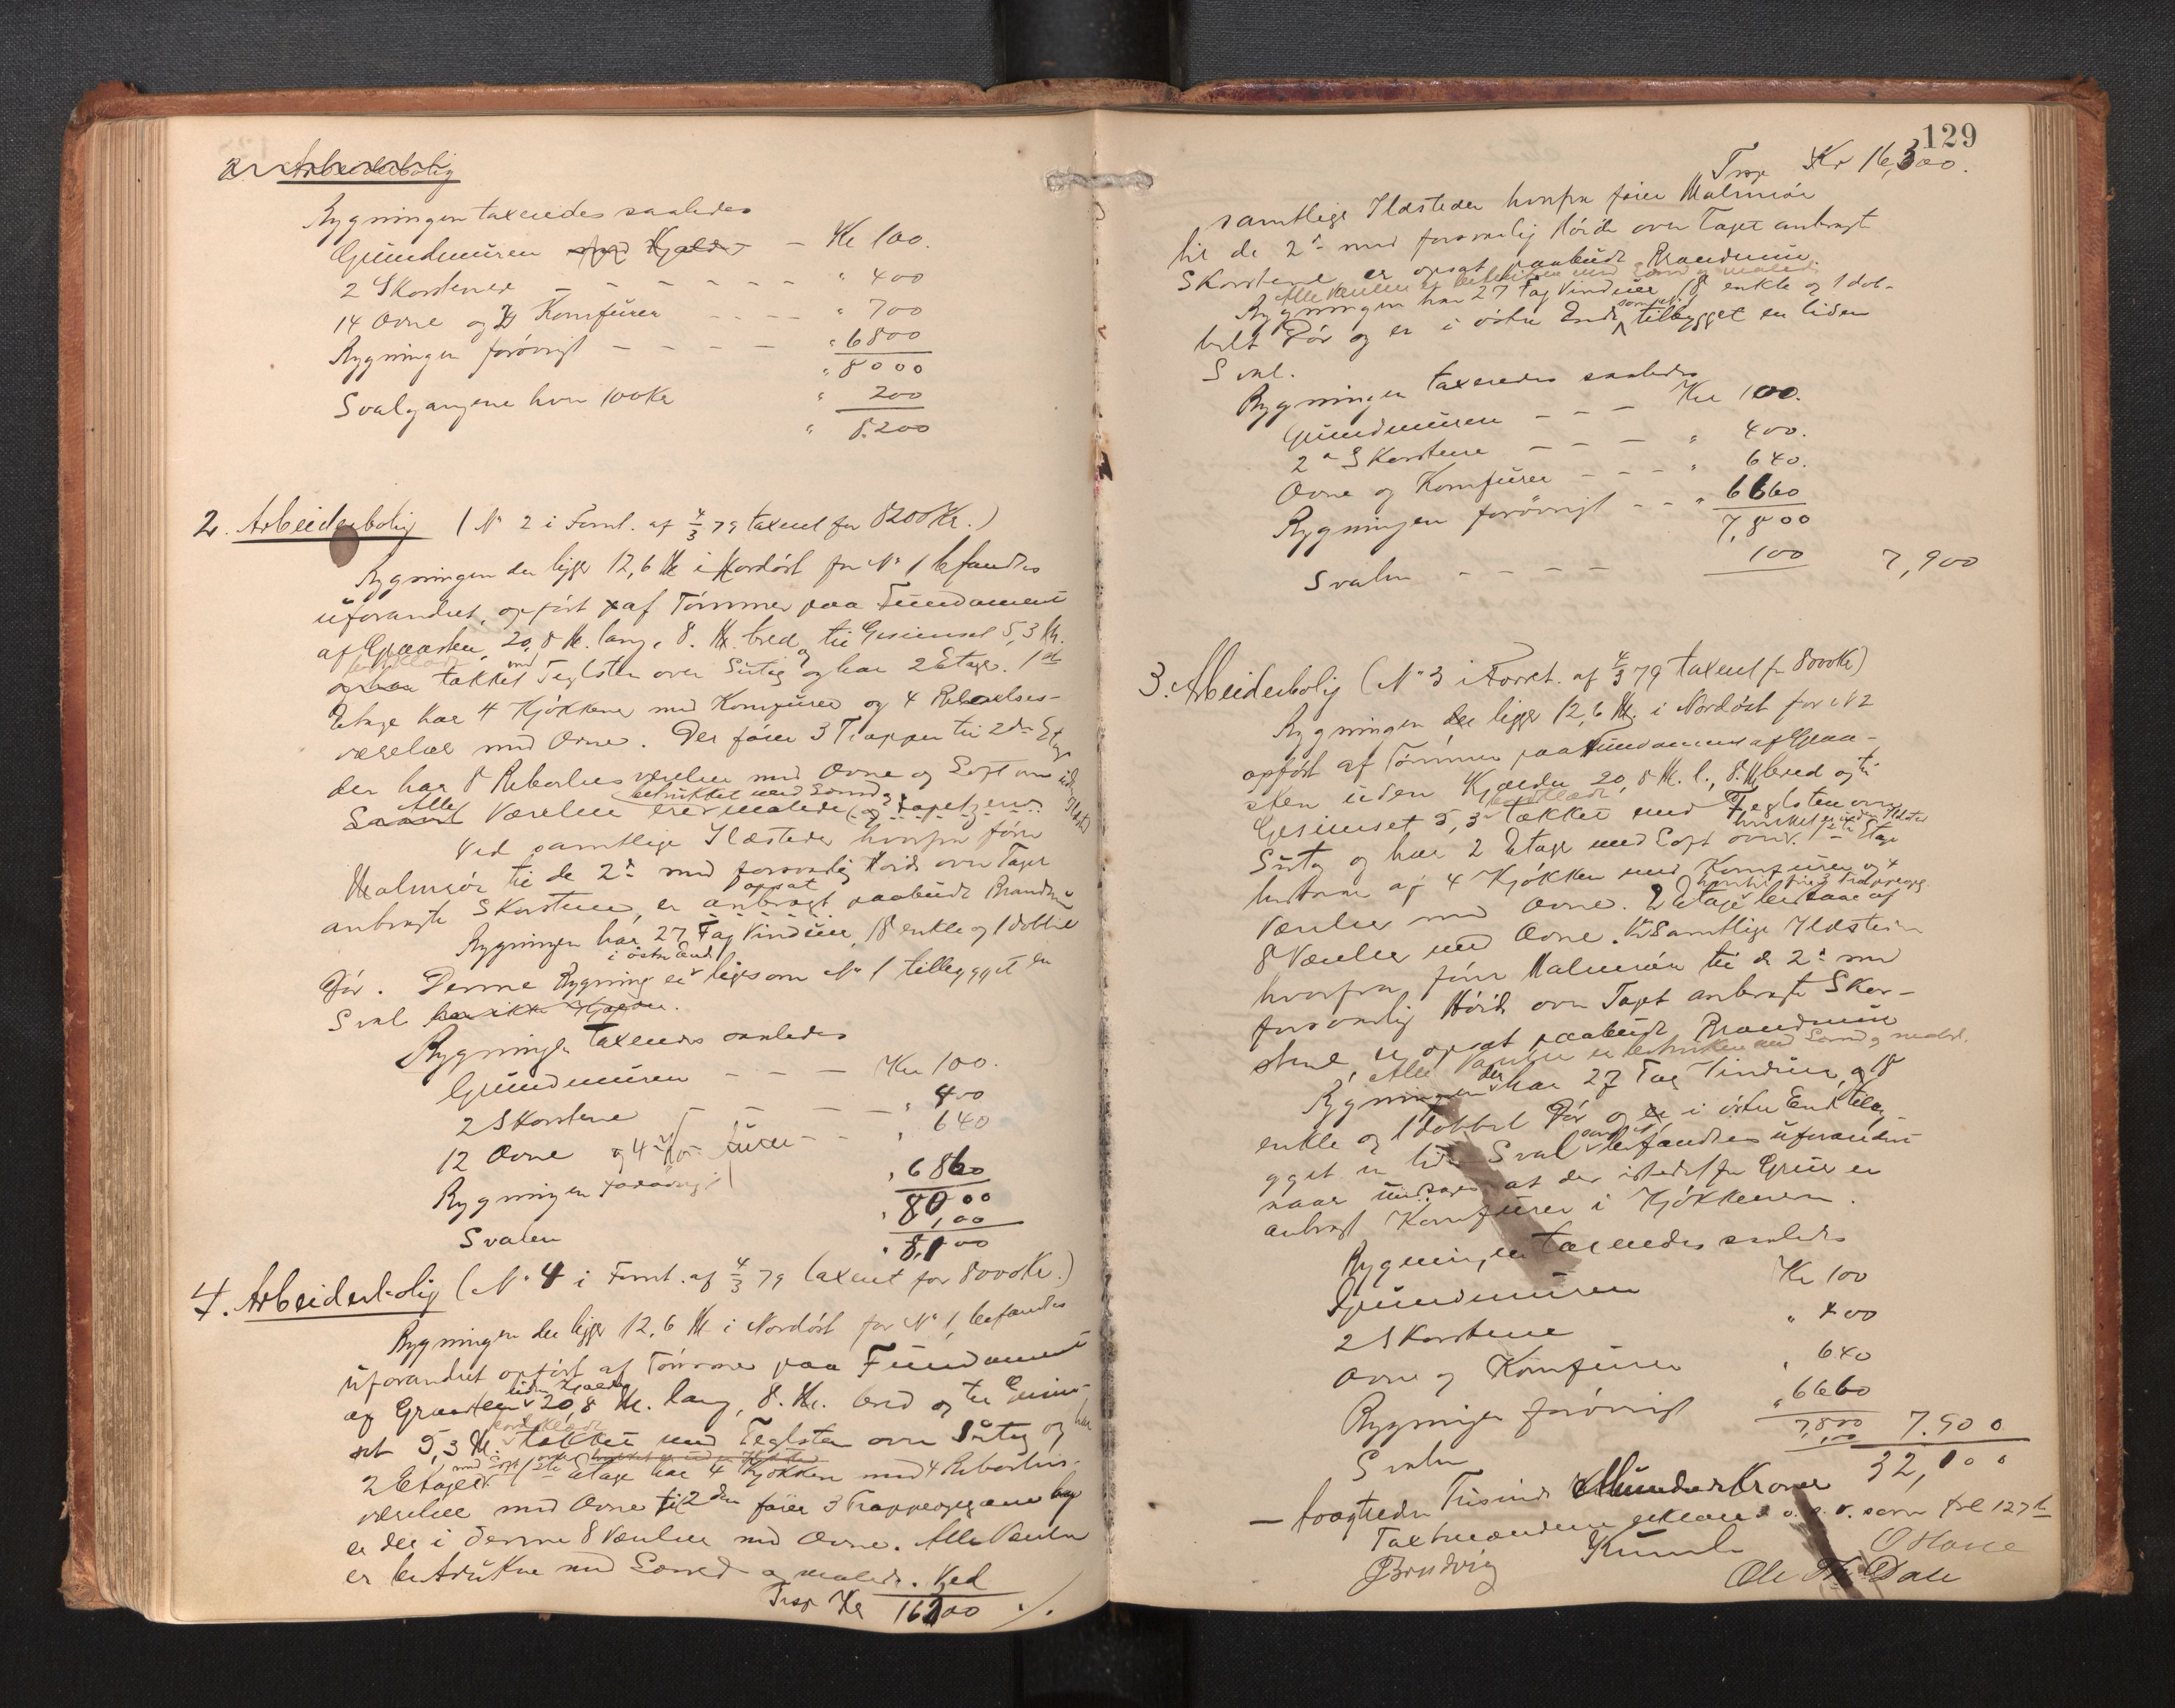 2 Arbeiderbolig
Bygningen taxeredes saaledes
Grundmuren med Kjelder - Kr 100.
2 Skorstene - - - - - - " 400
14 Ovne og Komfurer - - - - " 700
Bygningen forøvrigt - - - - - " 6800
" 8000
Svalgangene hver 100 Kr " 200
" 8.200
2. Arbeiderbolig (No 2 i Forret. af 4/3 79 taxeret for 8200 Kr.)
Bygningen der ligger 12,6 M. i Nordøst for No 1 befandtes
uforandret, opført af Tømmer paa Fundament
af Graasten, 20,8 M. lang, 8. M. bred og til Gesimset 5,3 M.
bordklædt
og har takket med Teglsten over Sutag og har 2 Etager. 1ste
Etage har 4 Kjøkkener med Komfurer og 4 Beboelses-
værelser med Ovne. Der fører 3 Trapper til 2den Etage
der har 8 Beboelsesværelser med Ovne og Loft over uden Ildsted
betrukket med Lærred
Alle Værelser ere malede (og tapetzerede
Ved samtlige Ildsteder hvorfra fører
Malmrør til de 2de med forsvarlig Høide over Taget
opsat
anbragte Skorstene, er anbragt paabudt Brandmur
Bygningen har 27 Fag Vinduer, 18 enkle og 1 dobbelt
i østre Ende
Dør. Denne Bygning er ligesom No 1 tilbygget en
Sval har ikke Kjælder.
Bygningen taxeredes saaledes
Grundmuren - - - Kr 100.
2 Skorstene - - - - " 400
12 Ovne og 4 Komfurer - - " 640
Bygningen forøvrigt " 6860
" 8000
Svalen " 100
" 8,100
4. Arbeiderbolig (No 4 i Forret. af 4/3 79 taxeret for 8000 Kr.)
Bygningen der ligger 12,6 M i Nordøst for No 1, befandtes
uforandret opført af Tømmer paa Fundament
uden Kjælder
af Graasten 20,8 M. lang, 8. M. bred og til Gesim-
bordklædt
set 5,3 M. takket med Teglsten over Sutag og har
med Loft over hvilket er uden Ildsted
2 Etager. 1ste Etage har 4 Kjøkken med 4 Beboelses-
værelser med Ovne til 2den fører 3 Trappeopgange og
er der i denne 8 Værelser med Ovne. Alle Værelser
er betrukne med Lærred og malede. Ved
Trsp Kr 16300 ./.
129
Trsp Kr 16,300.
samtlige Ildsteder hvorfra fører Malmrør
til de 2de med forsvarlig Høide over Taget anbragte
Skorstene er opsat paabudt Brandmur.
Alle Værelser er betrukken med Lærred og malede
Bygningen har 27 Fag Vinduer 18 enkle og 1 dob-
belt Dør og er i østre Ende tilbygget en liden
Sval.
Bygningen taxeredes saaledes
Grundmuren - - - Kr 100.
2de Skorstene - - - " 400.
Ovne og Komfurer - - - " 640.
Bygningen forøvrigt - - " 6660
7,800
Svalen - - - - 100 7,900
3. Arbeiderbolig (No 3 i Forret. af 4/3 79 taxeret for 8000 Kr)
Bygningen der ligger 12,6 M. i Nordøst for No 2
opført af Tømmer paa Fundament af Graa-
sten uden Kjælder 20,8 M. l., 8. M bred og til
bordklædt
Gesimset 5,3 M takket med Teglsten over
hvilket er uden Ildsted
Sutag og har 2 Etager med Loft over. 1ste Etage
bestaar af 4 Kjøkken med Komfurer og 4
hvortil fører 3 Trappeopg.
Værelser med Ovne. 2 Etage bestaar af
8 Værelser med Ovne. Ved Samtlige Ildsteder
hvorfra fører Malmrør til de 2de med
forsvarlig Høide over Taget anbragte Skor-
stene, er opsat paabudt Brandmur
Alle Værelser er betrukken med Lærred og malede.
Bygningen der har 27 Fag Vinduer og 18
enkle og 1 dobbel Dør og er i østre Ende tilby-
gget en liden Sval som befandtes uforandret
naar undtages at der istedetfor Gruer er
anbragt Komfurer i Kjøkkenerne.
Bygningen taxeredes saaledes
Grundmuren Kr 100
2 Skorstene " 400
Ovne og Komfurer " 640
Bygningen forøvrigt " 6660
7,800 7.900
Svalen 100
32,100
- toogtredve Tusinde Hundrede Kroner
Taxtmændene erklærede o.s.v. som fol 127
JBrudvig Kumle O Hove
Ole Th. Dale